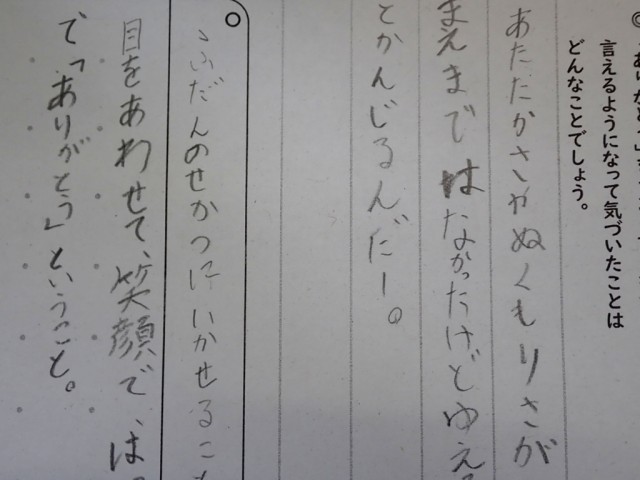 言えるようになって気づいたことは
どんなことでしょう。
あたたかさやぬくもりさが
まえまではなかったけどゆえ
とかんじるんだー。
ふだんのせかつにいかせるこ
目をあわせて、笑顔で、は
で「ありがとう」ということ。